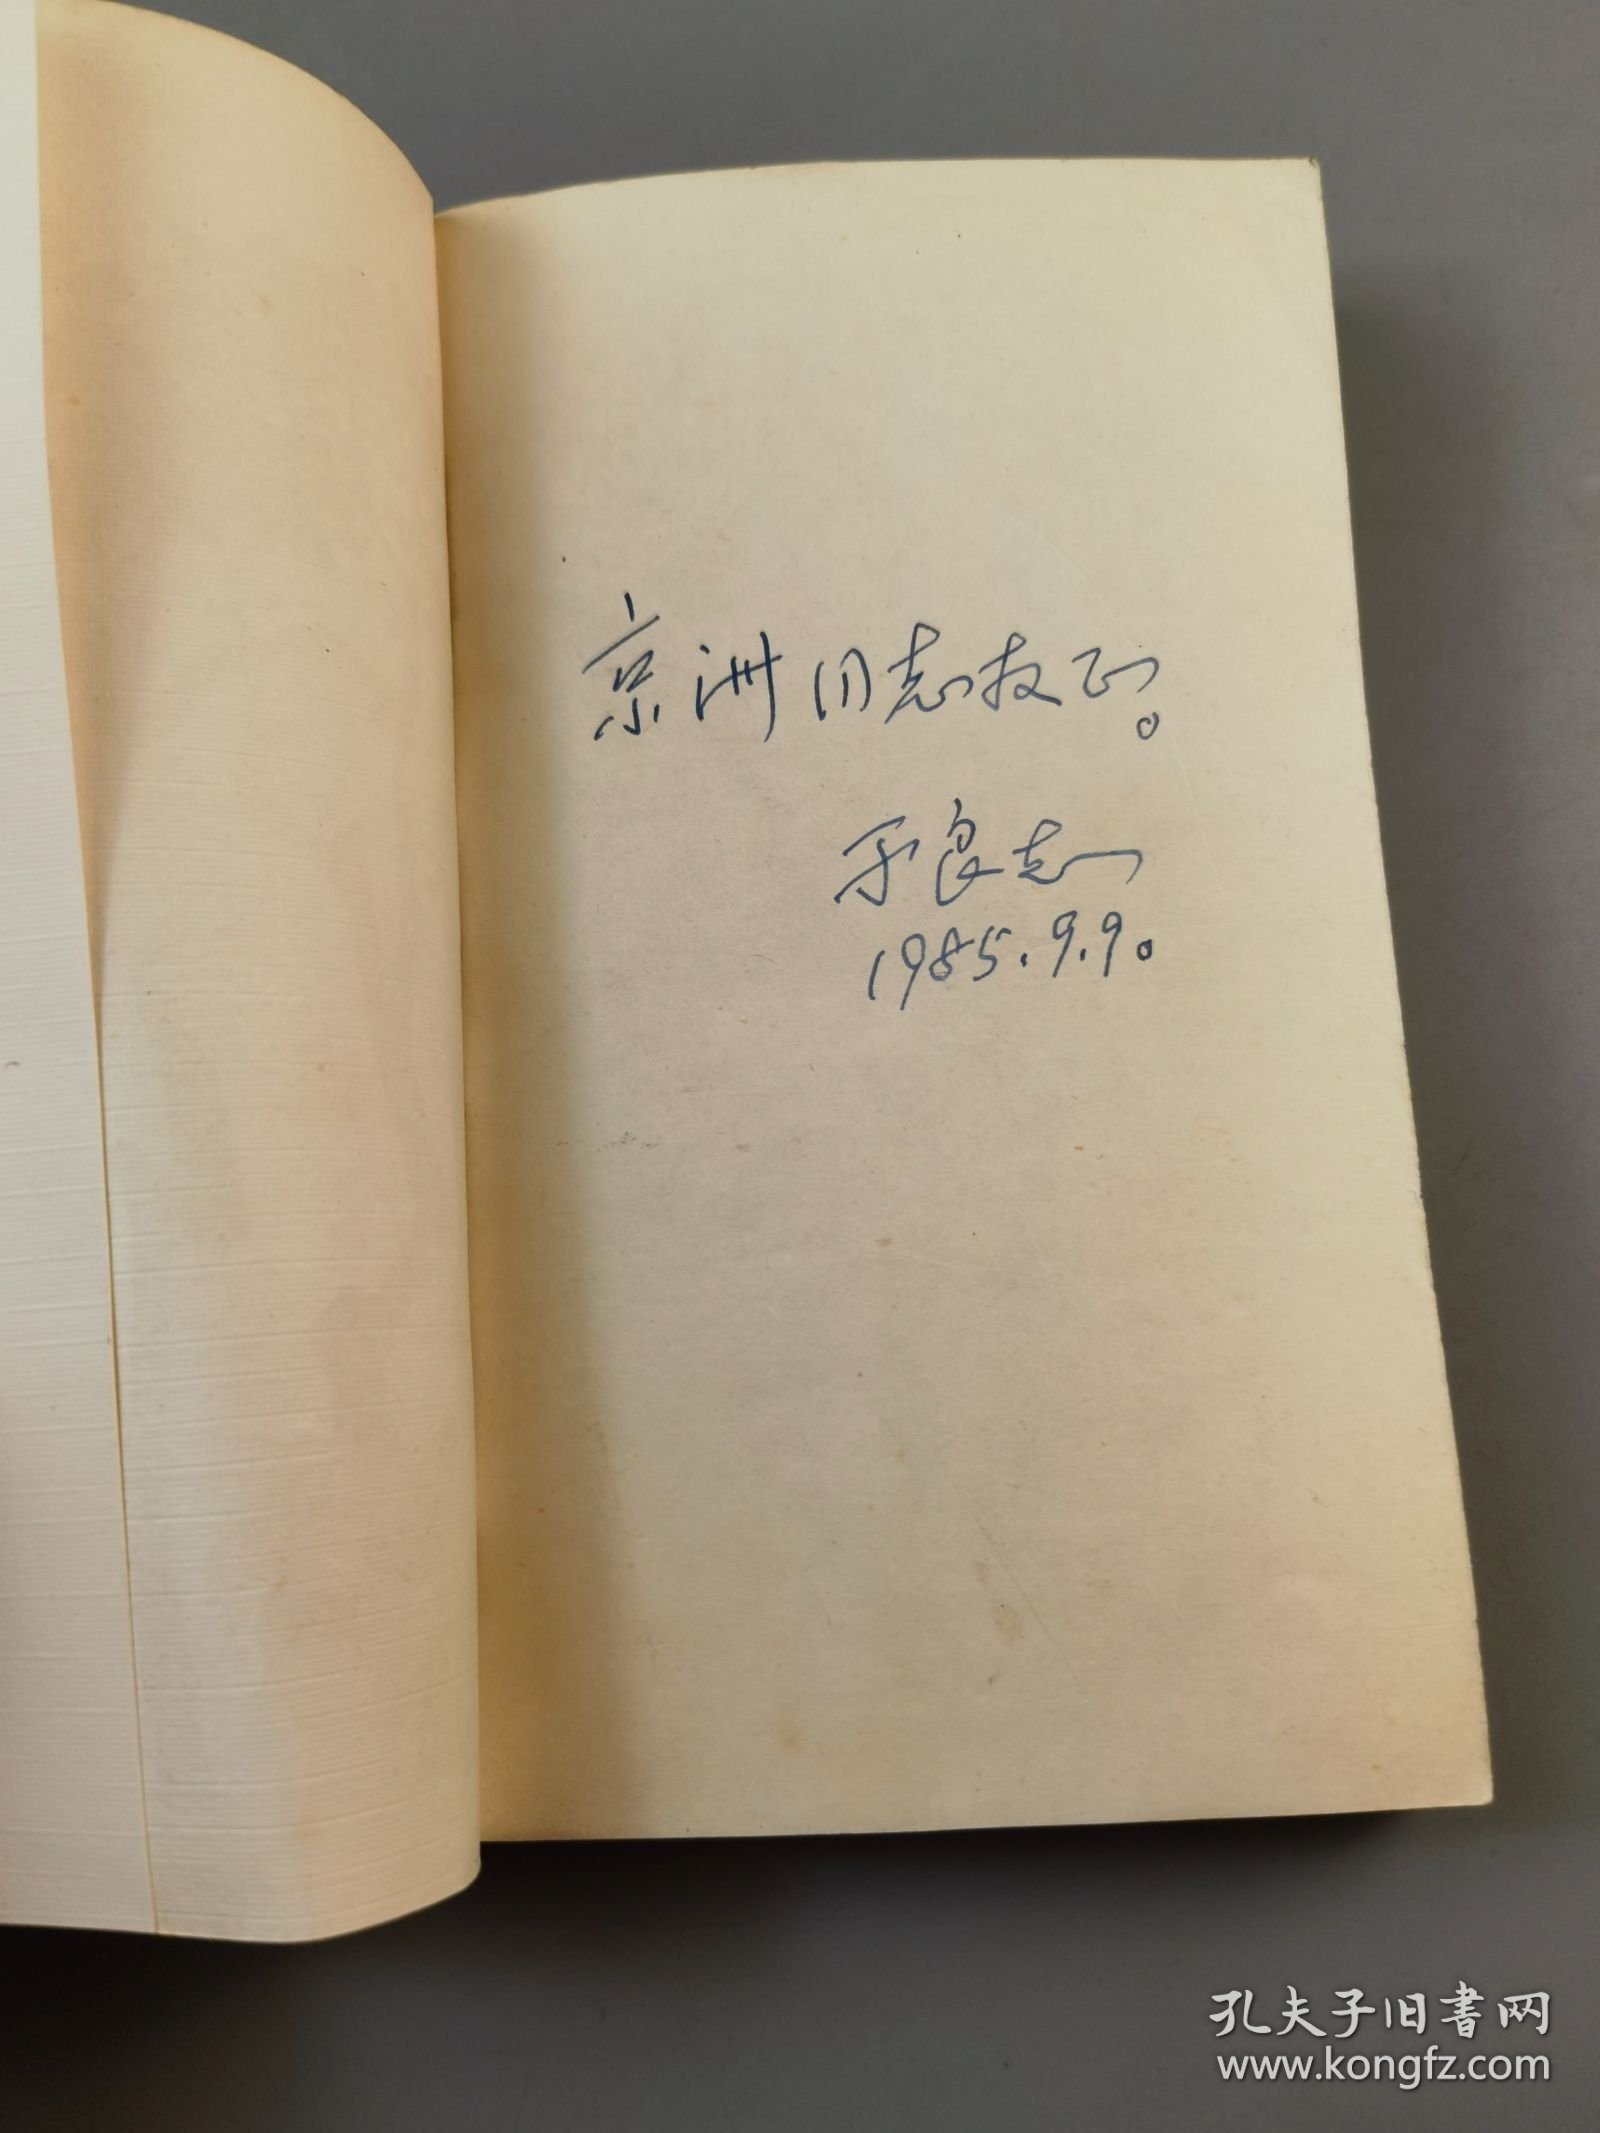 京洲同志教正。
于良志
1985.9.9。
孔夫子旧书网
www.kongfz.com